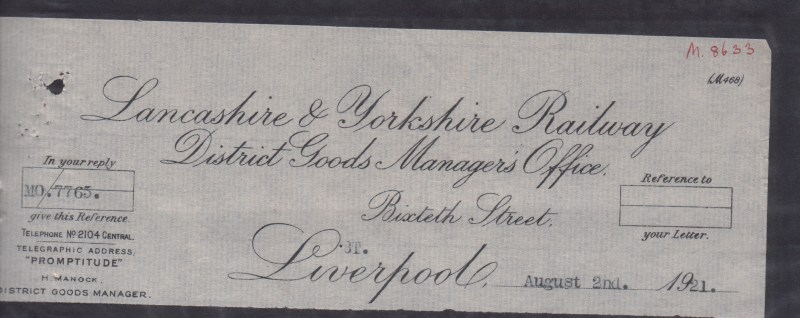 M. 8633
(M468)
Lancashire & Yorkshire Railway
District Goods Manager's Office.
Bixteth Street.
In your reply
MO./7765.
give this Reference.
TELEPHONE Nº 2104 CENTRAL.
TELEGRAPHIC ADDRESS
"PROMPTITUDE"
H. MANOCK.
DISTRICT GOODS MANAGER.
Reference to
your Letter.
BT.
Liverpool, August 2nd. 1921.